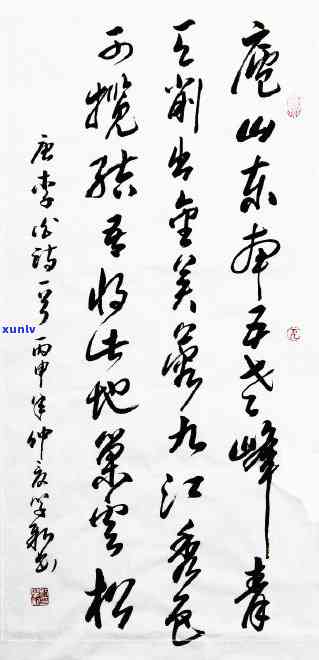 廬山东南五老峰青
天削出金芙蓉九江秀色
可揽結吾将此地巢雲松
唐李白詩一首丙申年仲夏
xunlv